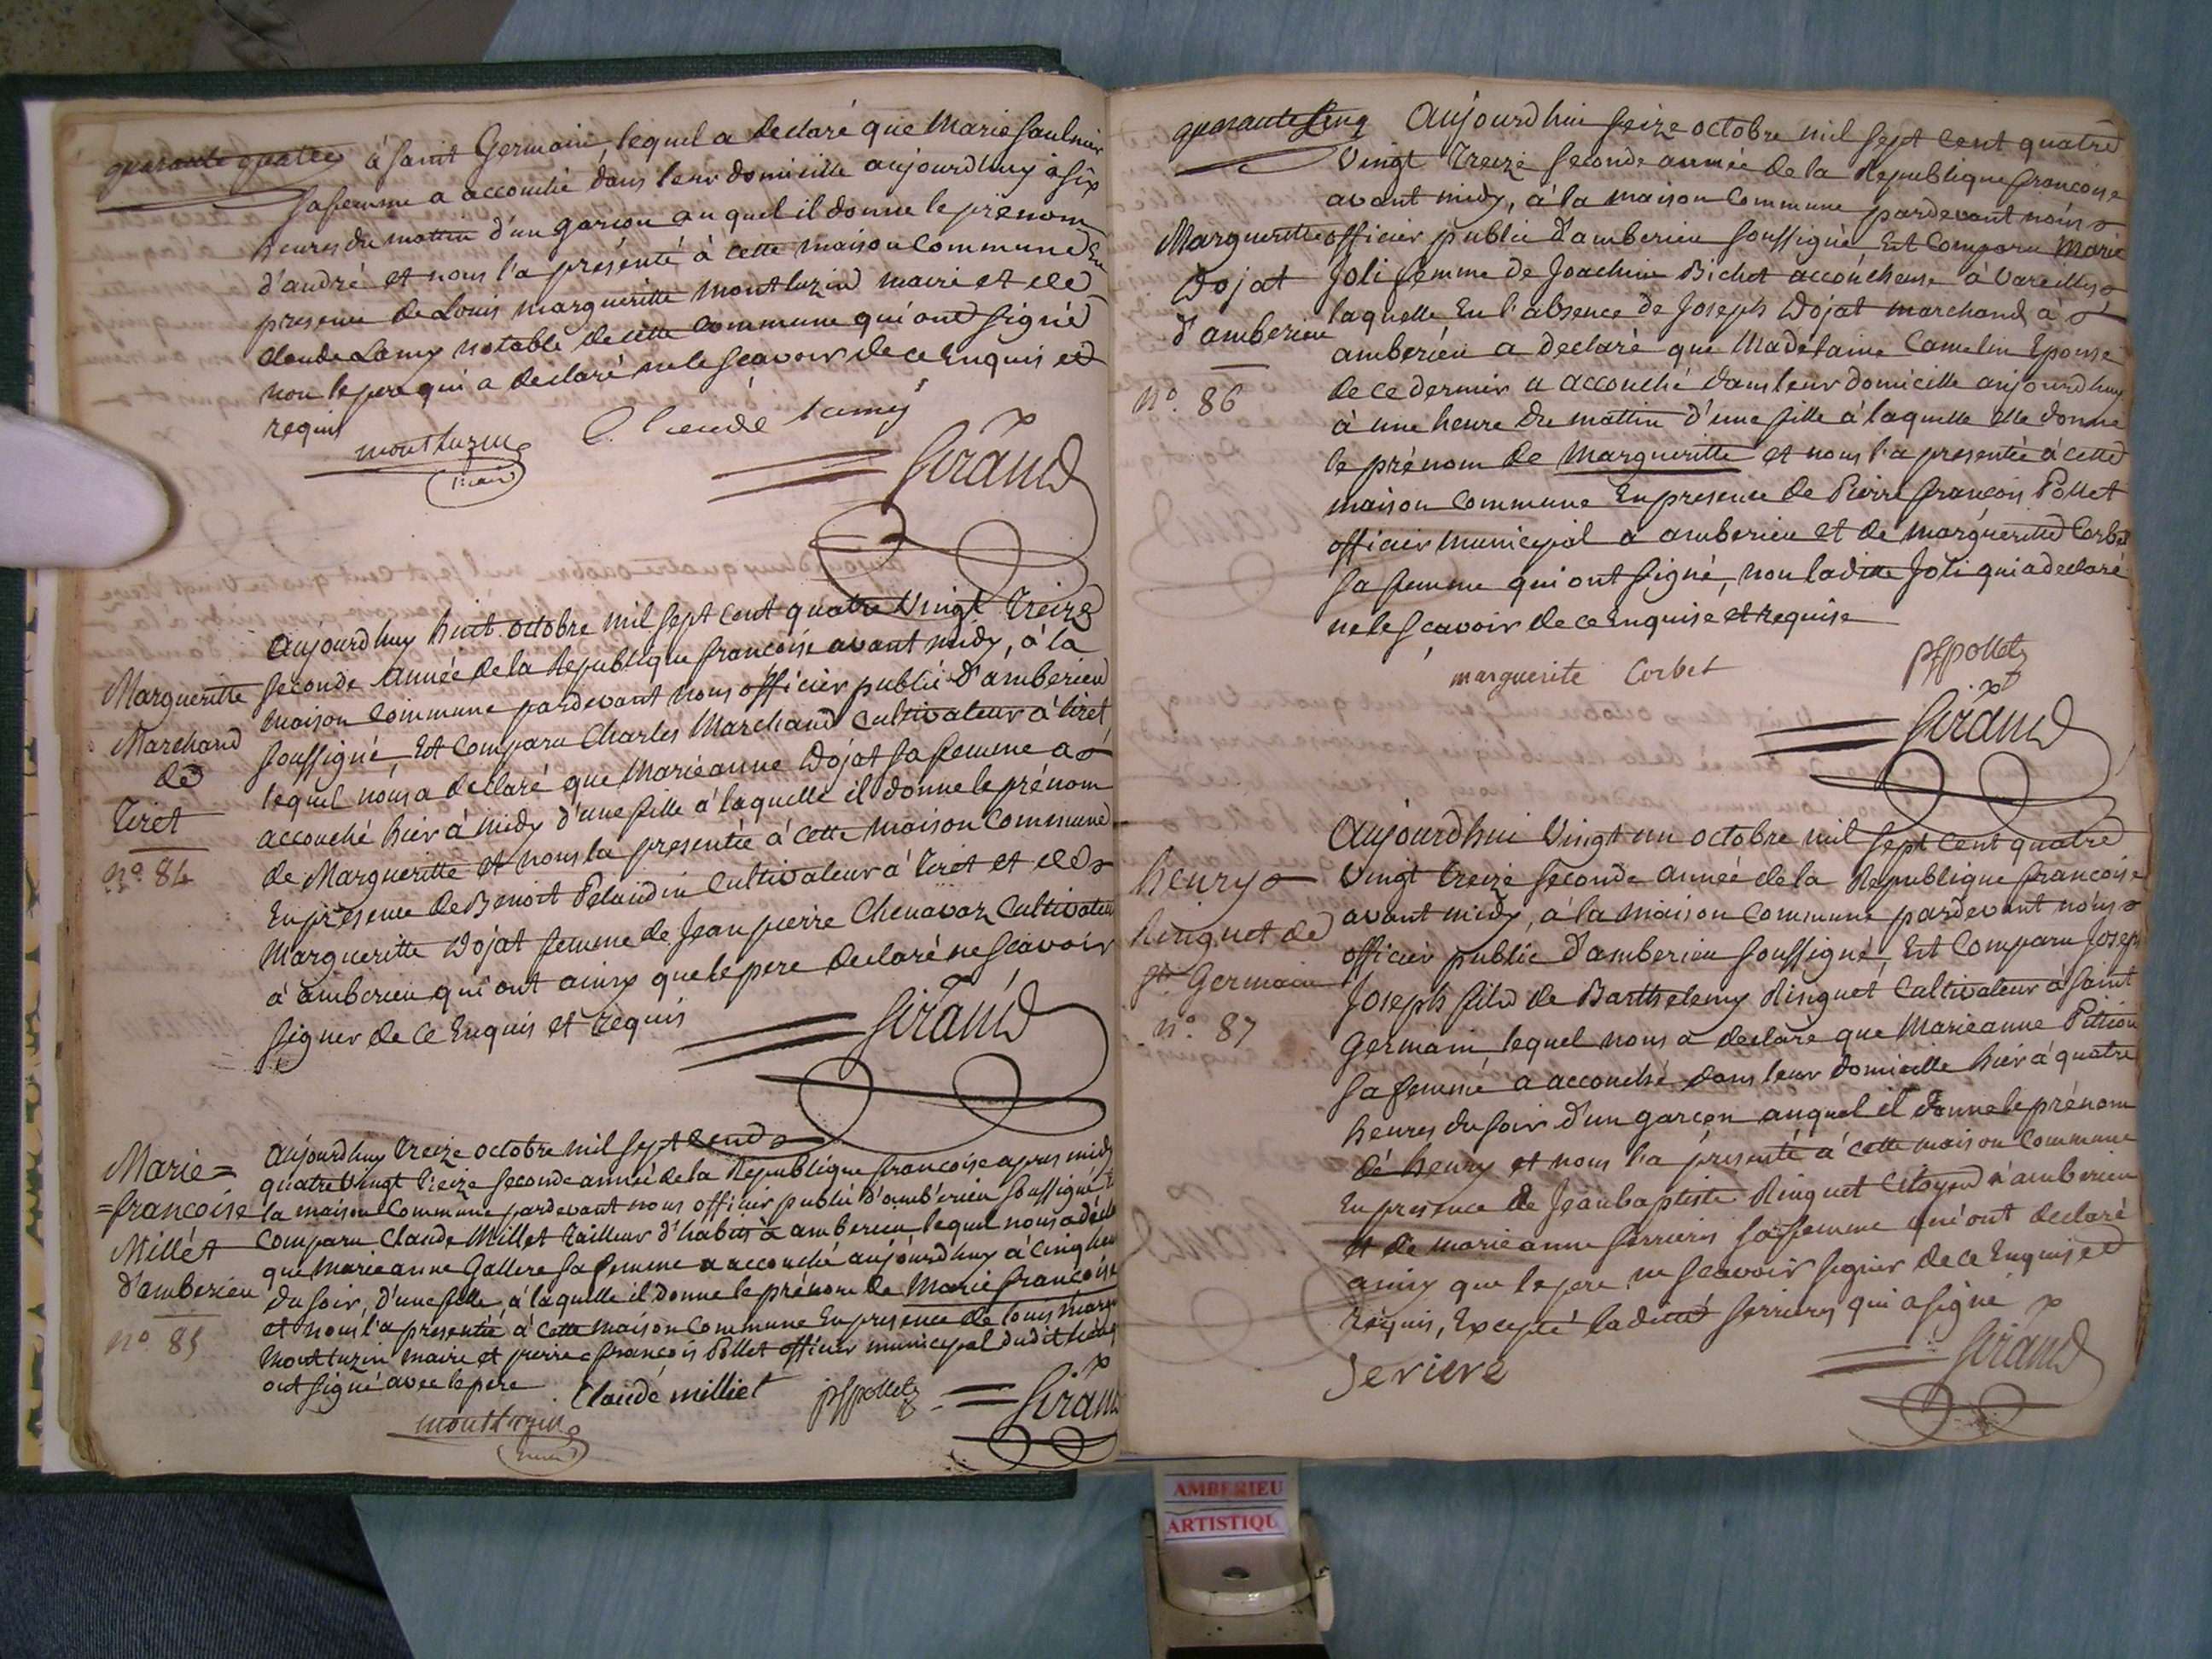 quarante quatre
à saint Germain, lequel a declaré que Marie saulnier
sa femme a accouché dans leur domicille aujourdhuy à six
heures du mattin d'un garcon au quel il donne le prenom
d'andré et nous l'a présenté à cette maison commune En
presence de Louis margueritte montluzin maire et de
claude Lamy notable de cette commune qui ont signé
non le pere qui a declaré ne le scavoir de ce Enquis et
requis
montluzin
maire
Claude lamy
Girand
Margueritte
Marchand
de
Tiret
n.o 84
aujourdhuy huit octobre mil sept cent quatre Vingt Treize
seconde année de la Republique francoise avant midy, à la
maison commune pardevant nous officier public d'amberieu
soussigné, Est comparu Charles Marchand cultivateur à tiret
lequel nous a declaré que Marieanne Dojat sa femme a
accouché hier à midy d'une fille à laquelle il donne le prénom
de Margueritte et nous la presentée à cette maison commune
En présence de Benoit Pelaudin cultivateur à tiret et de
Margueritte Dojat femme de Jean pierre Chenavaz cultivateur
à amberieu qui ont ainsy que le pere declaré ne scavoir
signer de ce Enquis et requis
Girand
Marie=
=francoise
Millét
d'amberieu
n.o 85
aujourdhuy Treize octobre mil sept cend
quatre Vingt Treize seconde année de la Republique francoise apres midy
la maison commune pardevant nous officier public d'amb'erieu soussigné
comparu Claude Millet Tailleur d'habits à amberieu lequel nous a
que marieanne Gallere sa femme a accouché aujourdhuy à cinq
du soir, d'une fille, à laquelle il donne le prénom de Marie francoise
et nous l'a presentée à cette maison commune En presence de louis
montluzin maire et pierre francois Pollet officier municipal dudit lieu
ont signé avec le pere
Claude milliet
pfpollet
Girand
montluzin
maire
quarante Cinq
Aujourdhui seize octobre mil sept cent quatre
Vingt Treize seconde année de la Republique francoise
avant midy, à la maison commune pardevant nous
officier public d'amberieu soussigné, Est comparu Marie
Joli femme de Joachim Bichot accoucheuse à Vareilles
laquelle En l'absence de Joseph Dojat marchand à
amberieu a declaré que Madelaine Camelin Epouse
de ce dernier a accouché dans leur domicille aujourdhuy
à une heure du mattin d'une fille à laquelle elle donne
le prénom de Margueritte et nous l'a presentée à cette
maison commune En presence de Pierre francois Pollet
officier municipal a amberieu et de margueritte Corbet
sa femme qui ont signé, non ladite Joli qui a declaré
ne le scavoir de ce Enquise et requise
Margueritte
Dojat
d'amberieu
n.o 86
marguerite Corbet
pfpollet
Girand
henry
Ringuet de
st Germain
n.o 87
Aujourdhui Vingt un octobre mil sept cent quatre
Vingt treize seconde année de la Republique francoise
avant midy, à la maison commune pardevant nous
officier public d'amberieu soussigné, Est comparu Joseph
Joseph fils de Barthelemy Ringuet cultivateur à saint
Germain, lequel nous a declaré que Marieanne Pittion
sa femme a accouché dans leur domicille hier à quatre
heures du soir d'un garçon auquel il donne le prénom
de henry et nous l'a présenté à cette maison commune
En presence de Jeanbaptiste Ringuet citoyen à amberieu
et de marieanne serrieres sa femme qui ont declaré
ainsy que le pere ne scavoir signer de ce Enquis et
requis, Excepté laditte serrieres qui a signé
Serieres
Girand
AMBERIEU
ARTISTIQU